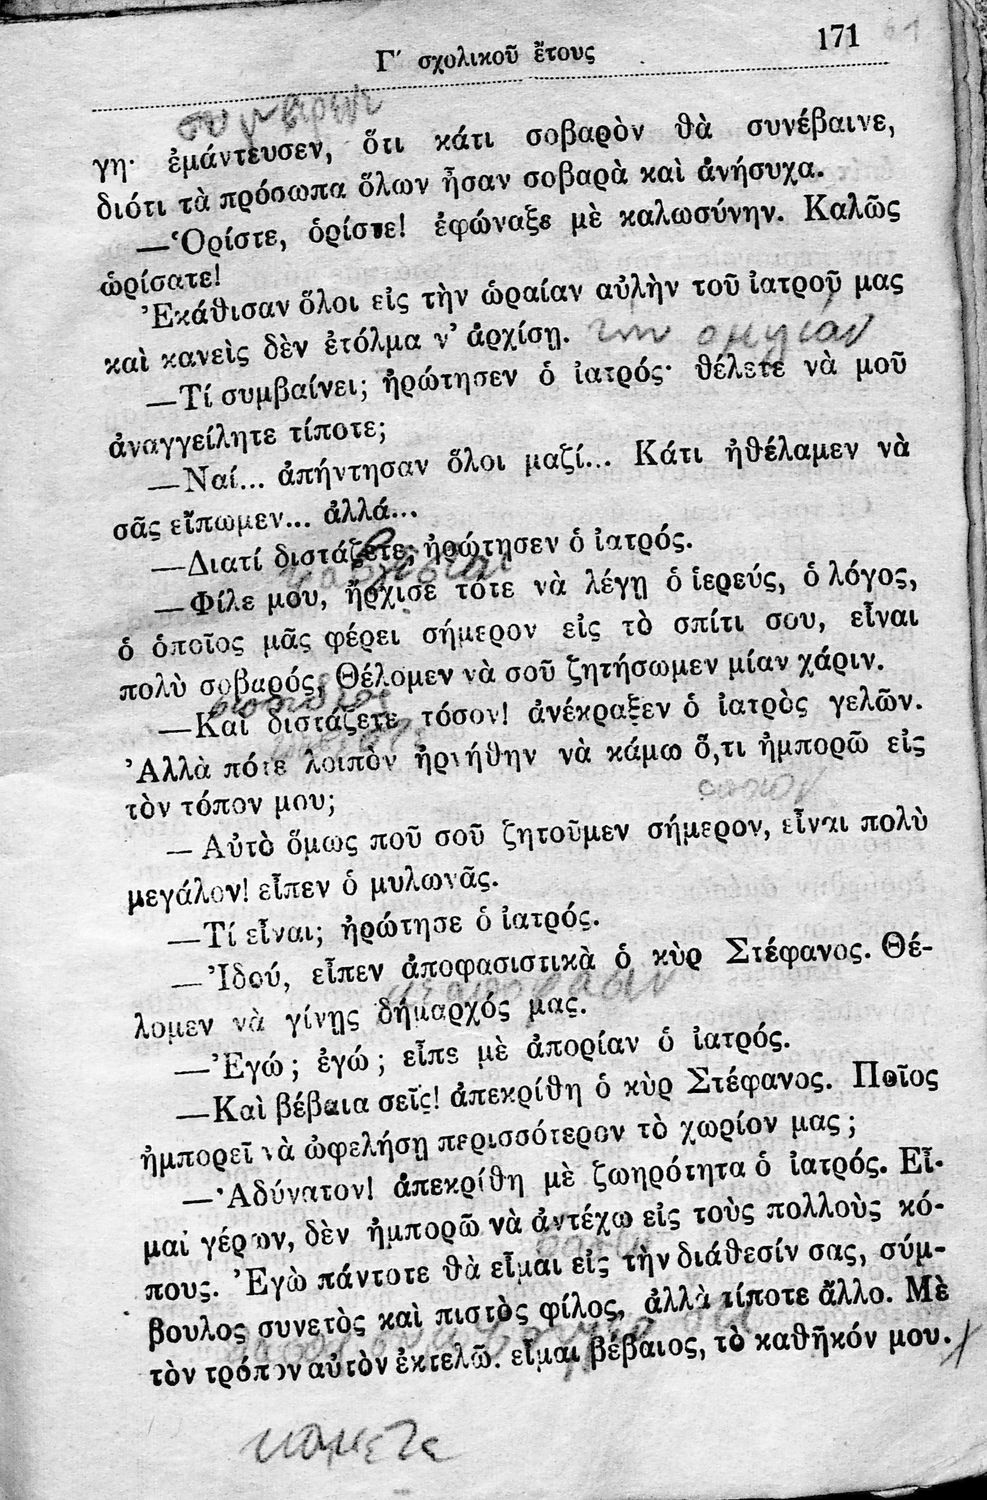 Γ′ σχολικοῦ ἔτους
171
γη· ἐμάντευσεν, ὅτι κάτι σοβαρὸν θὰ συνέβαινε,
διότι τὰ πρόσωπα ὅλων ἦσαν σοβαρὰ καὶ ἀνήσυχα.
—Ὁρίστε, ὁρίστε! ἐφώναξε μὲ καλωσύνην. Καλῶς
ὡρίσατε!
Ἐκάθισαν ὅλοι εἰς τὴν ὡραίαν αὐλὴν τοῦ ἰατροῦ μας
καὶ κανεὶς δὲν ἐτόλμα ν’ ἀρχίσῃ. την ομιλίαν
—Τί συμβαίνει; ἠρώτησεν ὁ ἰατρός· θέλετε νὰ μοῦ
ἀναγγείλητε τίποτε;
—Ναί... ἀπήντησαν ὅλοι μαζί... Κάτι ἠθέλαμεν νὰ
σᾶς εἴπωμεν... ἀλλά...
—Διατί διστάζετε; ἠρώτησεν ὁ ἰατρός.
—Φίλε μου, ἤρχισε τότε νὰ λέγῃ ὁ ἱερεύς, ὁ λόγος,
ὁ ὁποῖος μᾶς φέρει σήμερον εἰς τὸ σπίτι σου, εἶναι
πολὺ σοβαρός. Θέλομεν νὰ σοῦ ζητήσωμεν μίαν χάριν.
—Καὶ διστάζετε τόσον! ἀνέκραξεν ὁ ἰατρὸς γελῶν.
Ἀλλὰ πότε λοιπὸν ἠρνήθην νὰ κάμω ὅ,τι ἠμπορῶ εἰς
τὸν τόπον μου;
— Αὐτὸ ὅμως ποῦ σοῦ ζητοῦμεν σήμερον, εἶναι πολὺ
μεγάλον! εἶπεν ὁ μυλωνᾶς.
—Τί εἶναι; ἠρώτησε ὁ ἰατρός.
—Ἰδού, εἶπεν ἀποφασιστικὰ ὁ κὺρ Στέφανος. Θέ-
λομεν νὰ γίνῃς δήμαρχός μας.
—Ἐγώ; ἐγώ; εἶπε μὲ ἀπορίαν ὁ ἰατρός.
—Καὶ βέβαια σεῖς! ἀπεκρίθη ὁ κὺρ Στέφανος. Ποῖος
ἠμπορεῖ νὰ ὠφελήσῃ περισσότερον τὸ χωρίον μας;
—Ἀδύνατον! ἀπεκρίθη μὲ ζωηρότητα ὁ ἰατρός. Εἶ-
μαι γέρων, δὲν ἠμπορῶ νὰ ἀντέχω εἰς τοὺς πολλοὺς κό-
πους. Ἐγὼ πάντοτε θὰ εἶμαι εἰς τὴν διάθεσίν σας, σύμ-
βουλος συνετὸς καὶ πιστὸς φίλος, ἀλλὰ τίποτε ἄλλο. Μὲ
τὸν τρόπον αὐτὸν ἐκτελῶ. εἶμαι βέβαιος, τὸ καθῆκόν μου.
καμετε